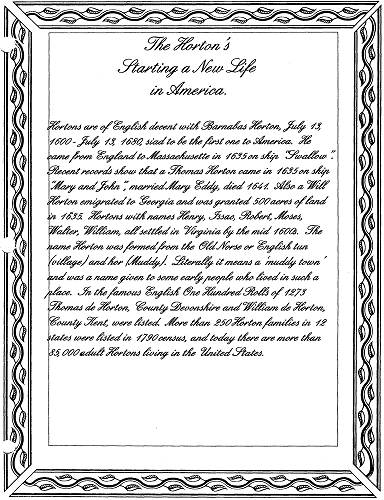 The Horton's
Starting a New Life
in America.
Hortons are of English decent with Barnabas Horton, July 13,
1600 - July 13, 1680, siad to be the first one to America. He
came from England to Massachusette in 1635 on ship "Swallow".
Recent records show that a Thomas Horton came in 1635 on ship
"Mary and John", married Mary Eddy, died 1641. Also a Will
Horton emigrated to Georgia and was granted 500 acres of land
in 1635. Hortons with names Henry, Issac, Robert, Moses,
Walter, William, all settled in Virginia by the mid 1600s. The
name Horton was formed from the Old Norse or English tun
(village) and her (Muddy). Literally it means a 'muddy town'
and was a name given to some early people who lived in such a
place. In the famous English One Hundred Rolls of 1273
Thomas de Horton, County Devonshire and William de Horton,
County Kent, were listed. More than 250 Horton families in 12
states were listed in 1790 census, and today there are more than
35,000 adult Hortons living in the United States.